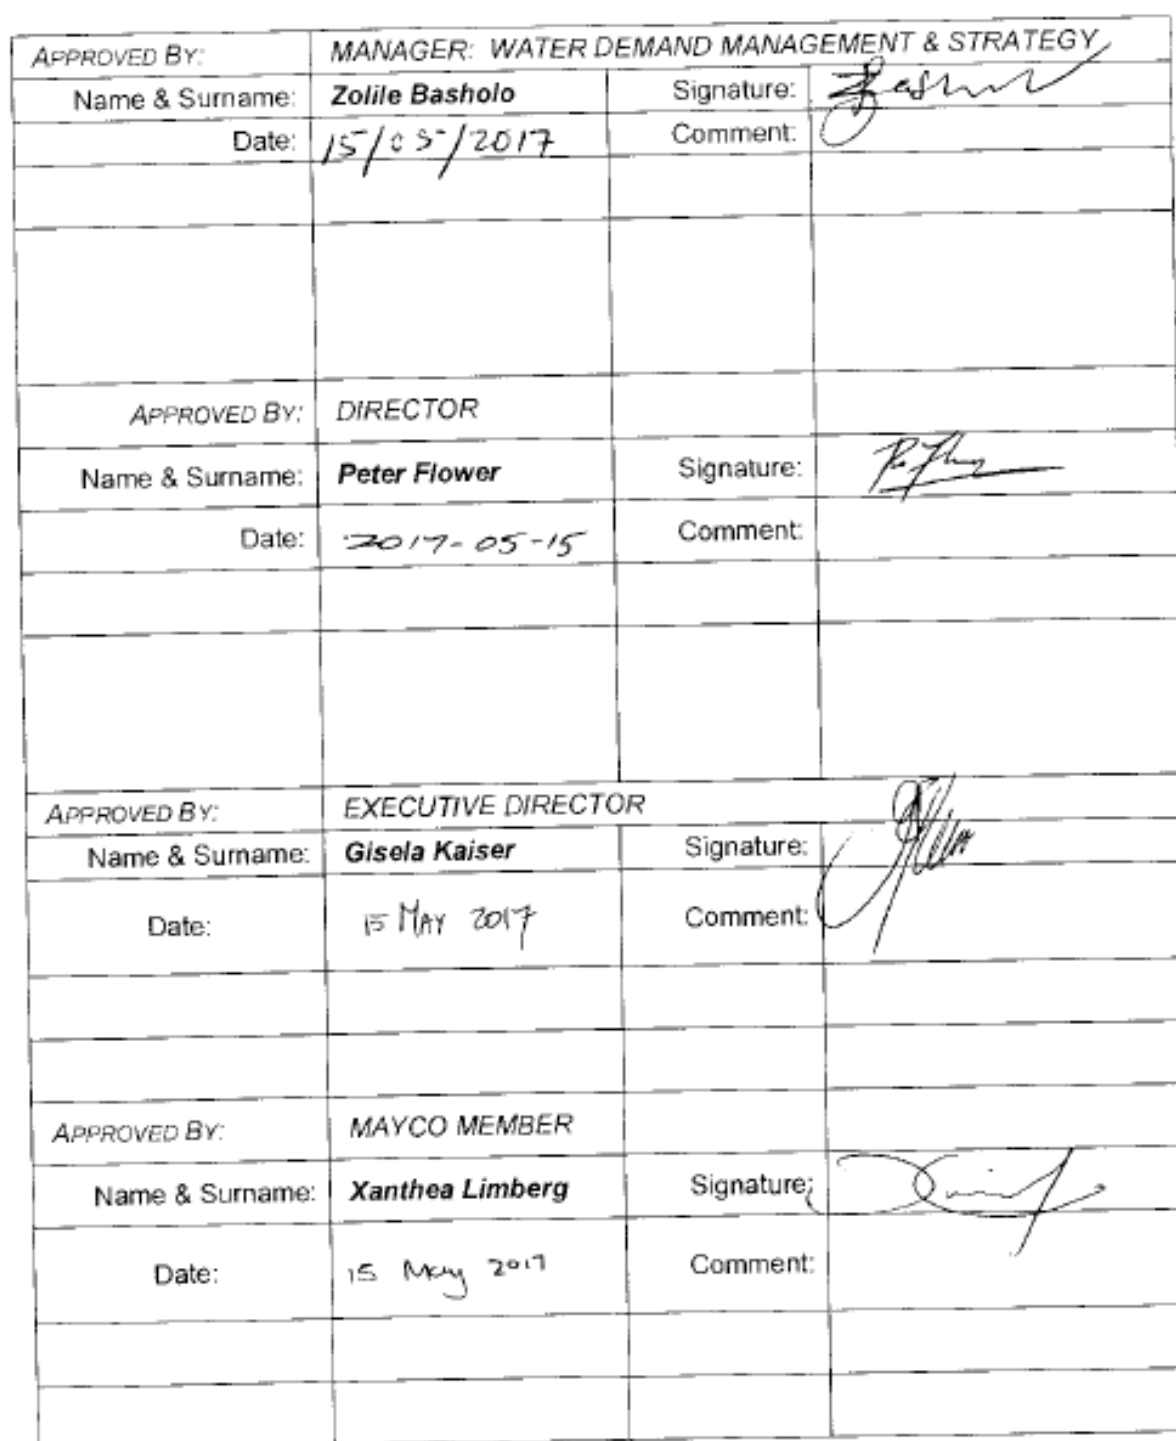 APPROVED BY: MANAGER: WATER DEMAND MANAGEMENT & STRATEGY
Name & Surname: Zolile Basholo Signature:
Date: 15/05/2017 Comment:
APPROVED BY: DIRECTOR
Name & Surname: Peter Flower Signature:
Date: 2017-05-15 Comment:
APPROVED BY: EXECUTIVE DIRECTOR
Name & Surname: Gisela Kaiser Signature:
Date: 15 MAY 2017 Comment:
APPROVED BY: MAYCO MEMBER
Name & Surname: Xanthea Limberg Signature:
Date: 15 May 2017 Comment: